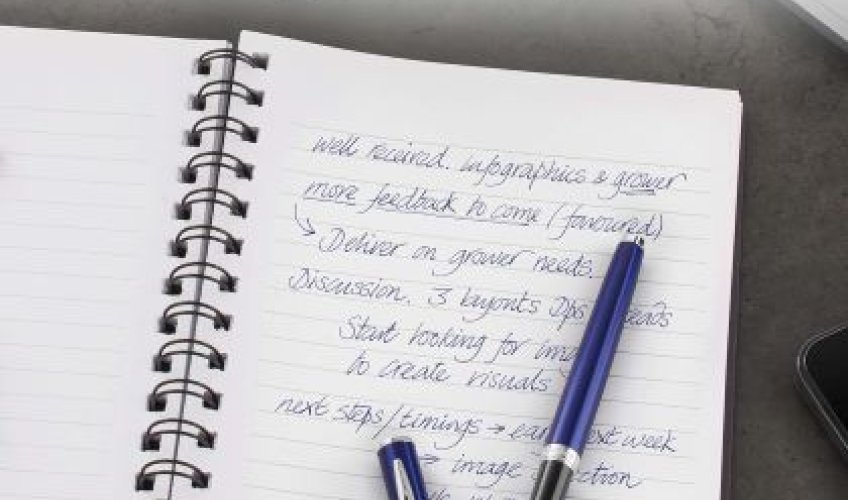 well received. infographics & grower
more feedback to come (favoured)
↳ Deliver on grower needs.
Discussion. 3 layouts Dps
Start looking for
to create visuals
next steps/timings → next week
→ image